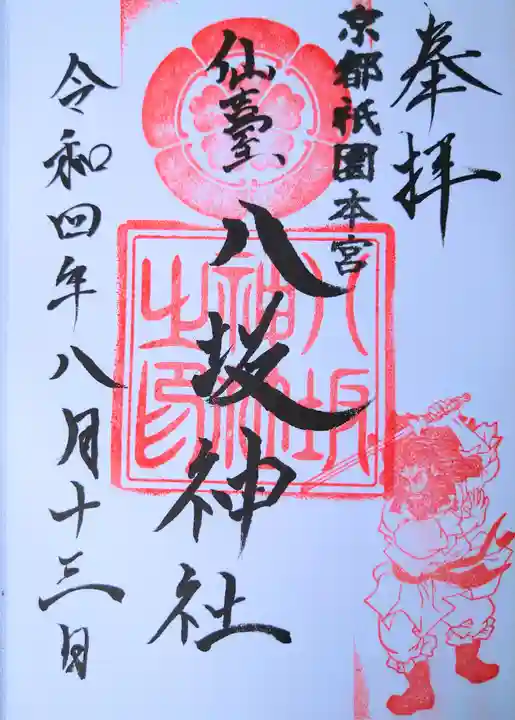 奉拝
京都祇園本宮
仙臺
八坂神社
八坂
神社
之印
令和四年八月十三日